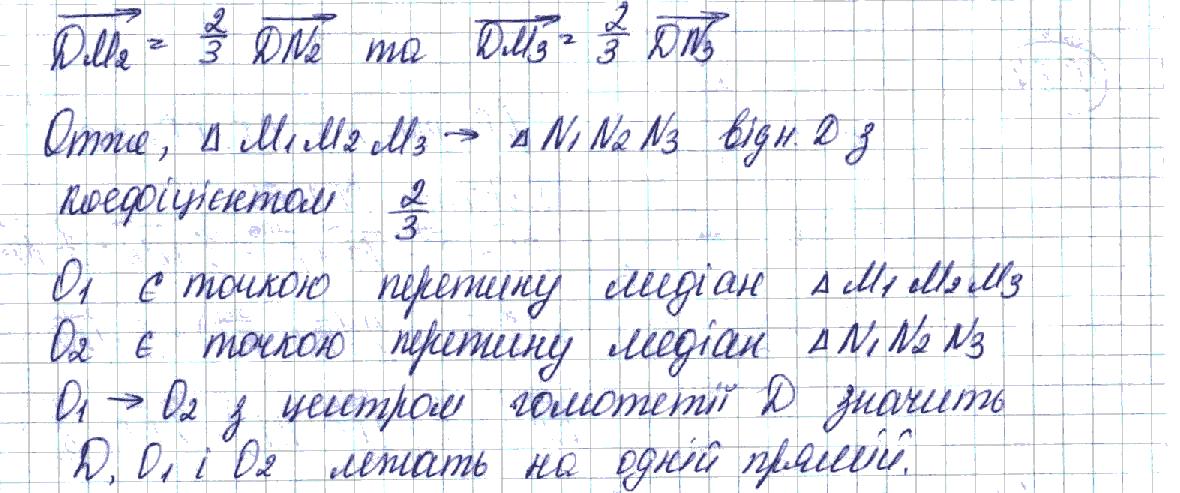 DM₂ = 2/3 DN₂ та DM₃ = 2/3 DN₃
Отже, △ M₁M₂M₃ → △ N₁N₂N₃ відн. D з
коефіцієнтом 2/3
O₁ є точкою перетину медіан △ M₁M₂M₃
O₂ є точкою перетину медіан △ N₁N₂N₃
O₁ → O₂ з центром гомотетії D значить
D, O₁ і O₂ лежать на одній прямій.